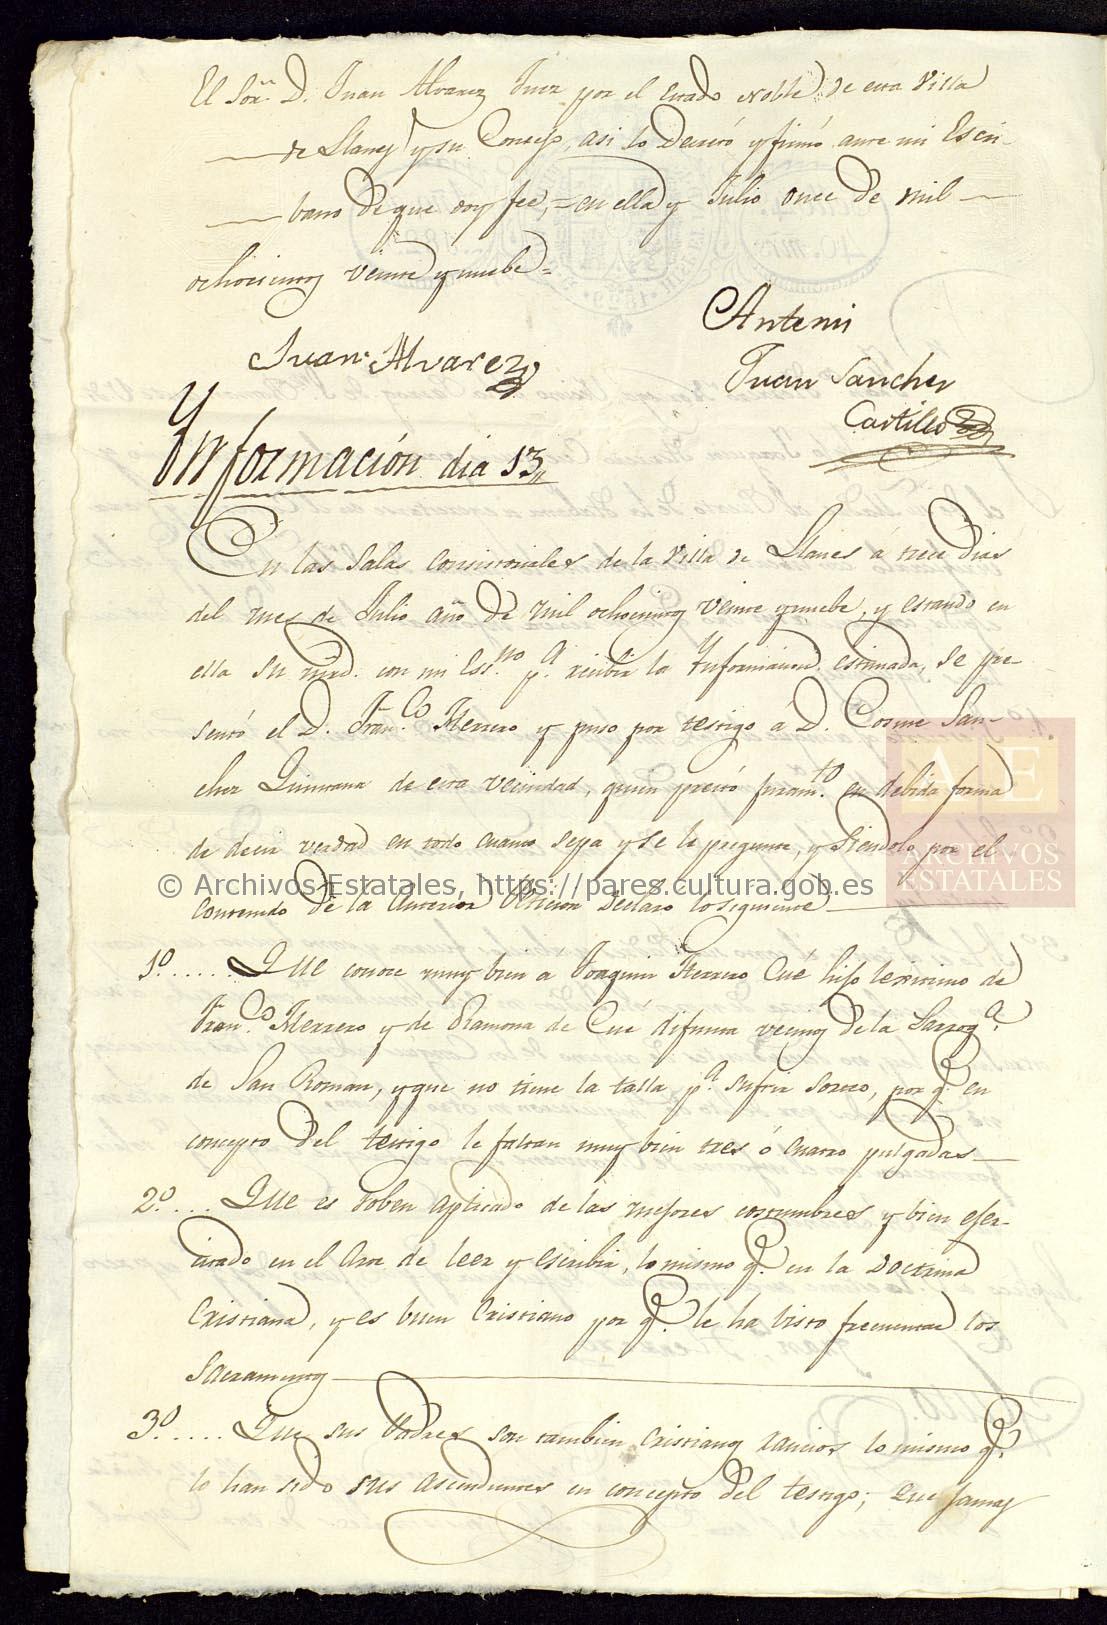 El Sor. D. Juan Alvarez Juez por el Estado Noble de esta Villa
de Llanes y su Concejo, asi lo Decretó y firmó ante mi Escri-
bano de que doy fee, = en ella y Julio once de mil
ochocientos veinte y nuebe =
Juan Alvarez
Antemi
Juan Sanchez
Castillo
Ynformación dia 13,,
En las Salas Consistoriales de la Villa de Llanes á trece Dias
del mes de Julio año de mil ochocientos veinte y nuebe, y estando en
ella Su mrd. con mi Essno. pa. recibir la Ynformacion estimada, se pre-
sentó el D. Franco. Herrero y puso por testigo á D. Cosme San-
chez Quintana de esta vecindad, quien prestó juramto. en debida forma
de decir verdad en todo cuanto sepa y se le pregunte, y siendolo por el
Contenido de la Anterior Peticion Declaro lo siguiente
1º. .... Que conoce muy bien á Joaquin Herrero Cué hijo lexitimo de
Franco. Herrero y de Ramona de Cué difunta vecinos de la Parroqa.
de San Roman, y que no tiene la talla pa. sufrir Sorteo, por q. en
concepto del testigo le faltan muy bien tres ó cuatro pulgadas
2º. ... Que es Joben aplicado de las mejores costumbres y bien ejer-
citado en el Arte de leer y escribir, lo mismo q. en la Doctrina
Cristiana, y es buen Cristiano por q. le ha bisto frecuentar los
Sacramentos
3º. .... Que sus Padres son tambien Cristianos rancios lo mismo q.
lo han sido sus ascendientes en concepto del testigo; Que jamas
A E
ARCHIVOS
ESTATALES
© Archivos Estatales, https://pares.cultura.gob.es